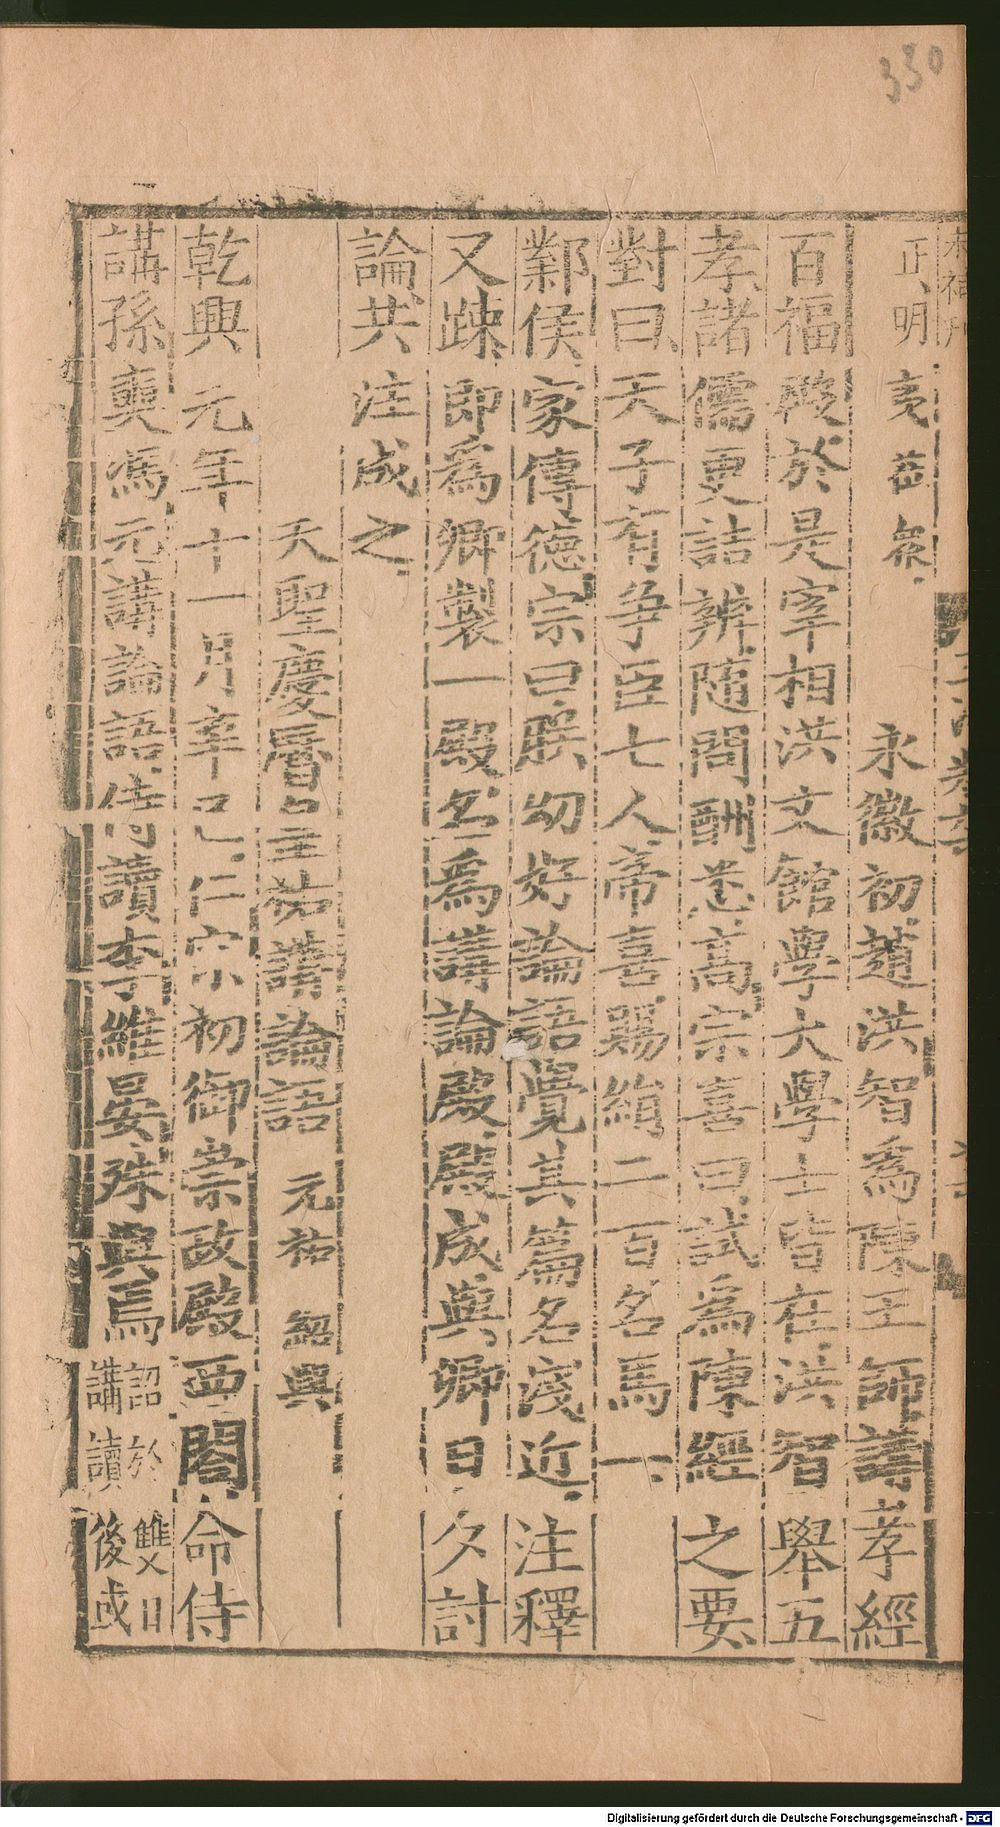 330
正明
永徽初趙洪智為陳王師講孝經
百福殿於是宰相洪文館學大學士皆在洪智舉五
孝諸儒更詰辨隨問酬悉高宗喜曰試為陳經之要
對曰天子有爭臣七人帝喜賜絹二百名馬一
鄴侯家傳德宗曰朕幼好論語覺其篇名淺近注釋
又踈即為卿製一殿名為講論殿殿成與卿日夕討
論共注成之
天聖慶曆皇祐講論語 元祐 紹興
乾興元年十一月辛巳仁宗初御崇政殿西閣命侍
講孫奭馮元講論語侍讀李維晏殊與焉
詔於雙日
講讀後或
Digitalisierung gefördert durch die Deutsche Forschungsgemeinschaft - DFG